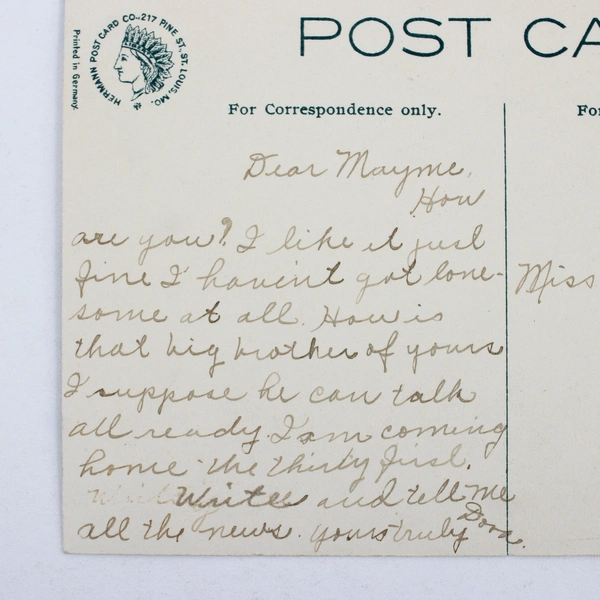 HERMANN POST CARD CO., 217 PINE ST., ST. LOUIS, MO.
Printed in Germany.
POST CA
For Correspondence only.
For
Dear Mayme,
How
are you? I like it just
fine I havent got lone-
some at all. How is
that big brother of yours
I suppose he can talk
all ready. I am coming
home the thirty first.
Write and tell me
all the news. yours truly
Dora.
Miss